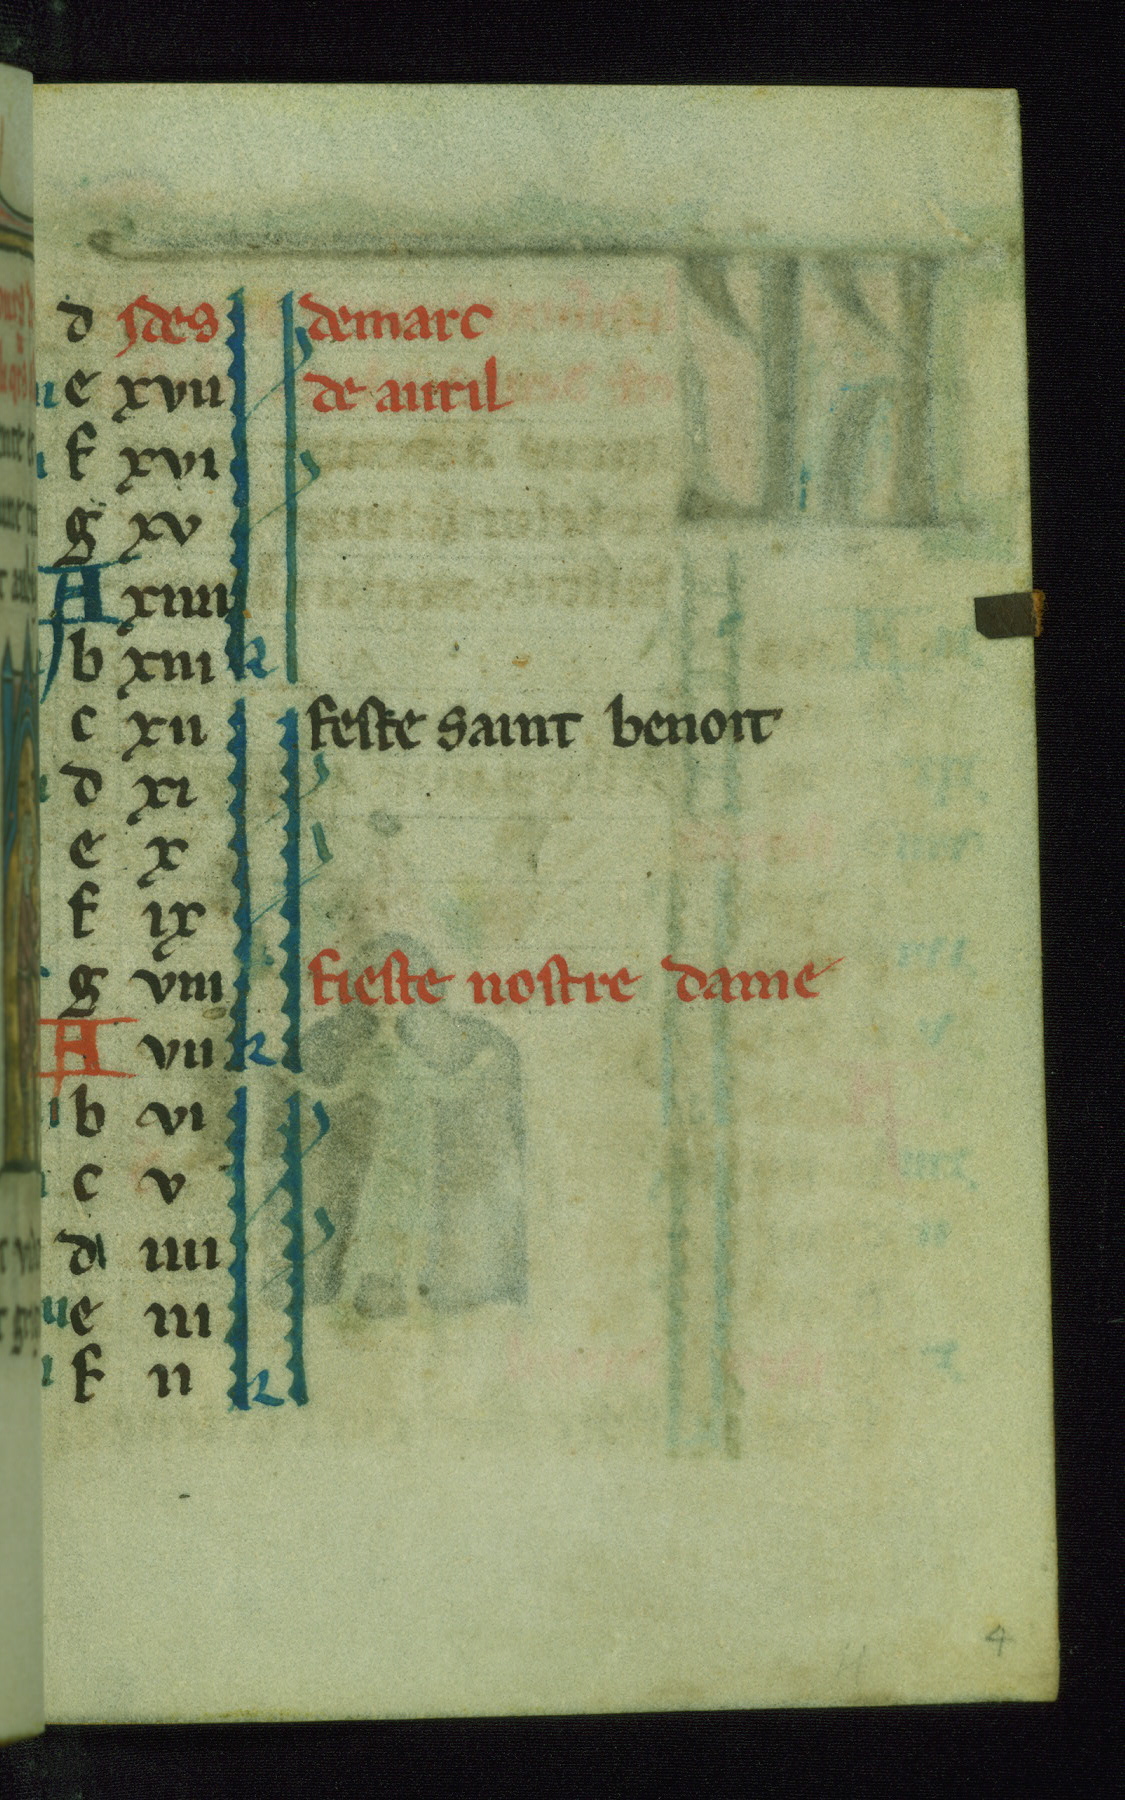 d ydes demarc
e xvii de auril
f xvi
g xv
A xiiii
b xiii k
c xii feste saint benoit
d xi
e x
f ix
g viii fieste nostre dame
A vii k
b vi
c v
d iiii
e iii
f ii k
4